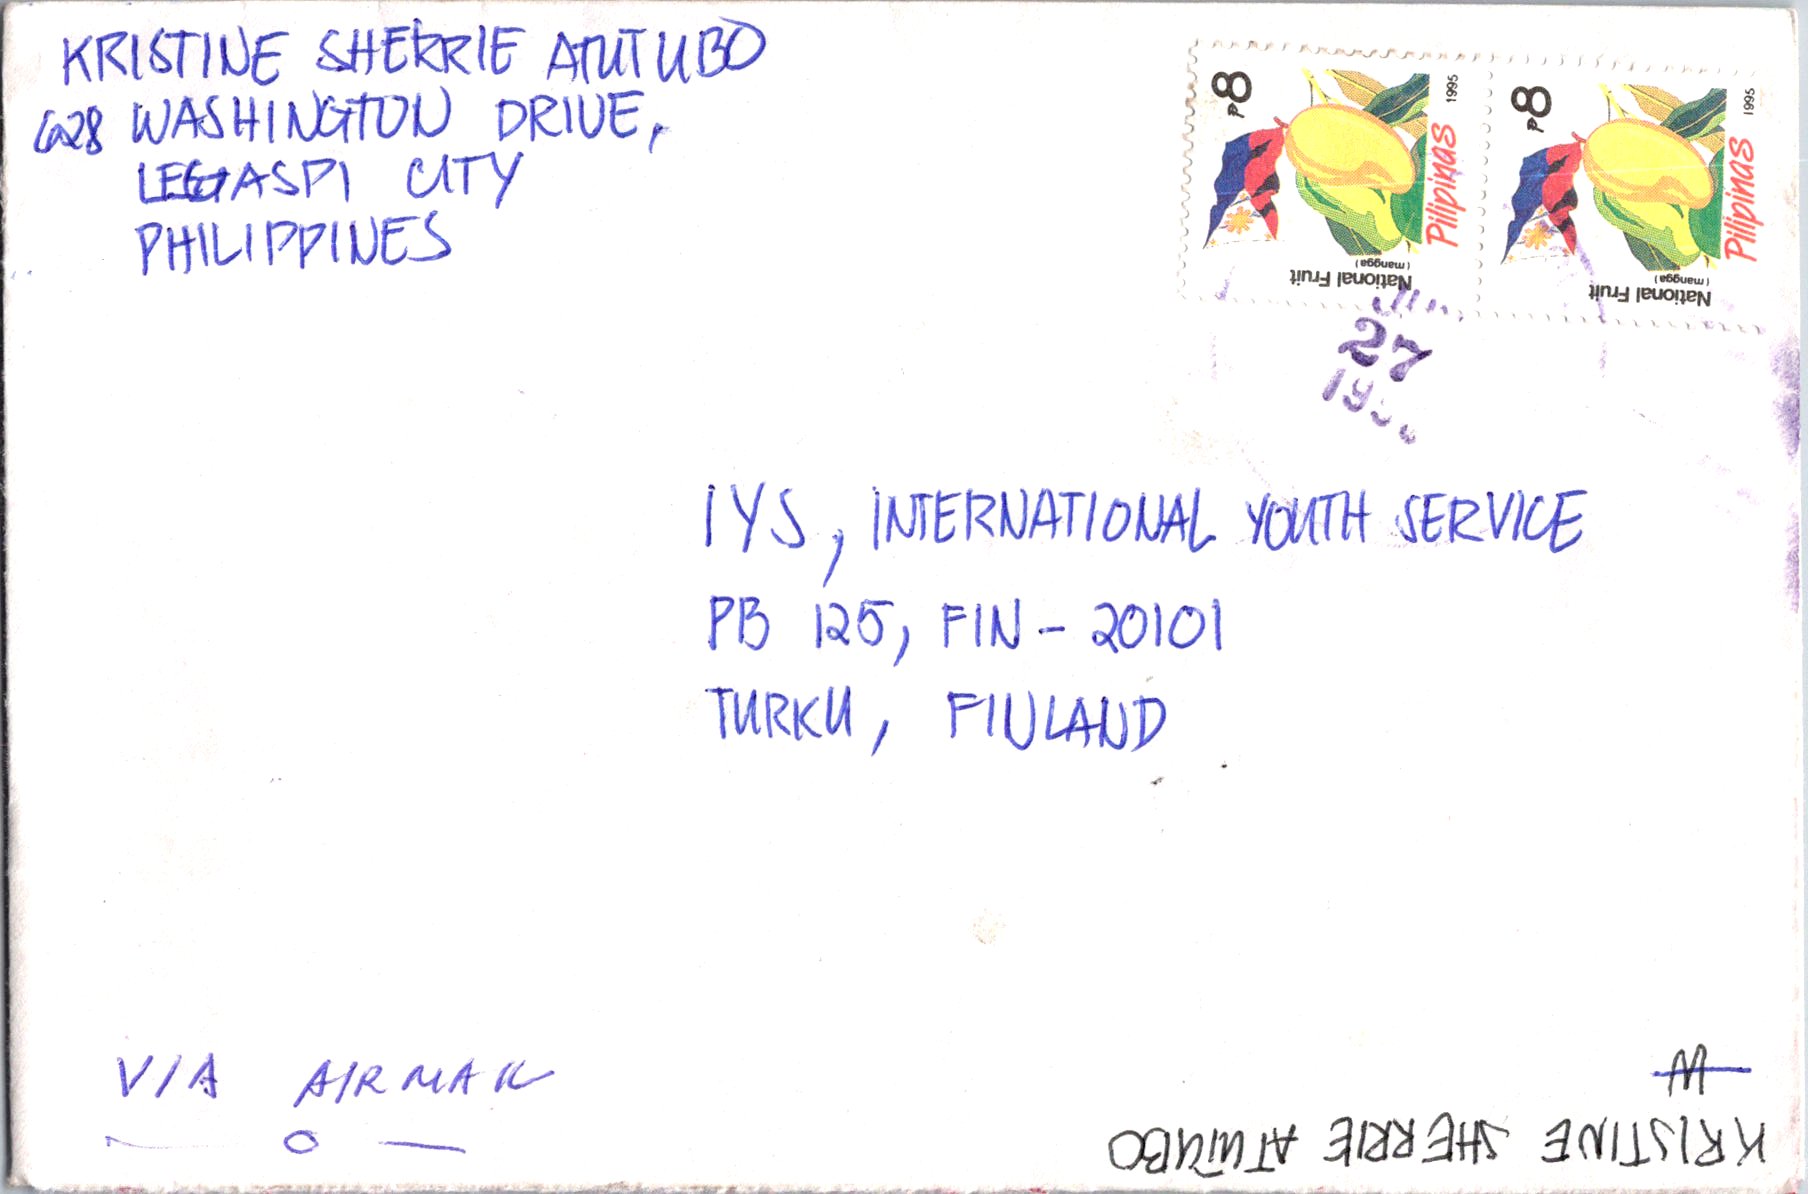 KRISTINE SHERRIE ATUTUBO
628 WASHINGTON DRIVE,
LEGASPI CITY
PHILIPPINES
P8
1995
Pilipinas
National Fruit
(mangga)
P8
1995
Pilipinas
National Fruit
(mangga)
27
IYS, INTERNATIONAL YOUTH SERVICE
PB 125, FIN - 20101
TURKU, FINLAND
VIA AIRMAIL
KRISTINE SHERRIE ATUTUBO